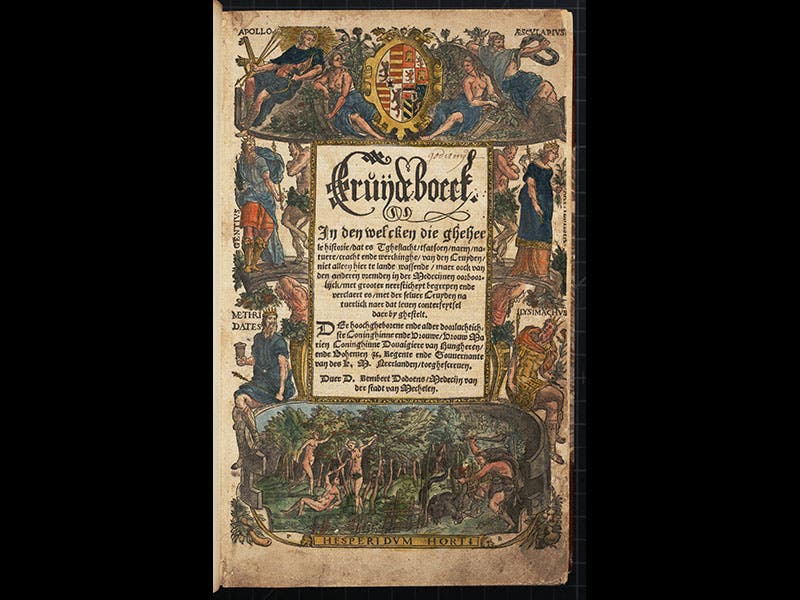 APOLLO
ÆSCULAPIVS
Cruÿdeboeck.
In den welcken die gheheele
le historie/dat es Tgheslacht/tfatsoen/naem/na-
tuere/cracht ende werckinghe/van den Cruyden/
niet alleen hier te lande wassende/maer oock van
den anderen vremden in der Medecijnen oorboor-
lijck/met grooter neersticheyt begrepen ende
verclaert es/met der seluer Cruyden na
tuerlick naer dat leuen conterfeytsel
daer by ghestelt.
GENTIUS
METHRI
DATES
LYSIMACHVS
Der hoochgheborene ende alder doorluchtich-
ste Coninghinne ende Vrouwe/Vrouw Ma-
rien Coninghinne Douaigiere van Hungheren/
ende Bohemen &c. Regente ende Gouuernante
van des K. M. Neerlanden/toegheschreuen.
Duer D. Rembert Dodoens/Medecijn van
der stadt van Mechelen.
P
B
HESPERIDVM HORTI